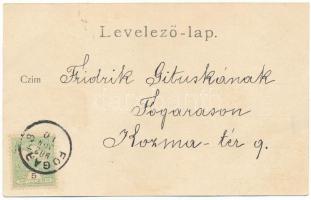 Levelező-lap.
Czim
Fridrik Gituskának
Fogarason
Kozma-tér 9.
FOGARAS
5